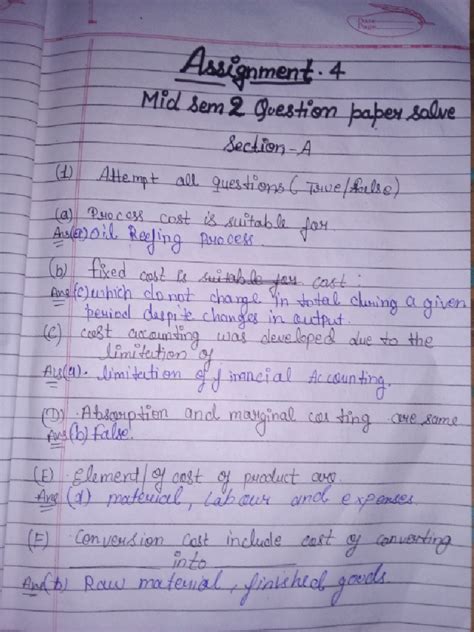 Assignment. 4
Mid sem 2 Question paper solve
Section-A
(1) Attempt all questions (True/false)
(a) Process cost is suitable for
Ans(a) Oil Reefing process.
(b) fixed cost is suitable for cost:
Ans(c) which do not change in total during a given
period despite changes in output.
(C) cost accounting was developed due to the
limitation of
Ans(a). limitation of financial Accounting.
(D). Absorption and marginal costing are same
Ans(b) false.
(E) Element/of cost of product are.
Ans (d) material, Labour and expenses
(F) Conversion cost include cost of converting
into
Ans(b) Raw material, finished goods.